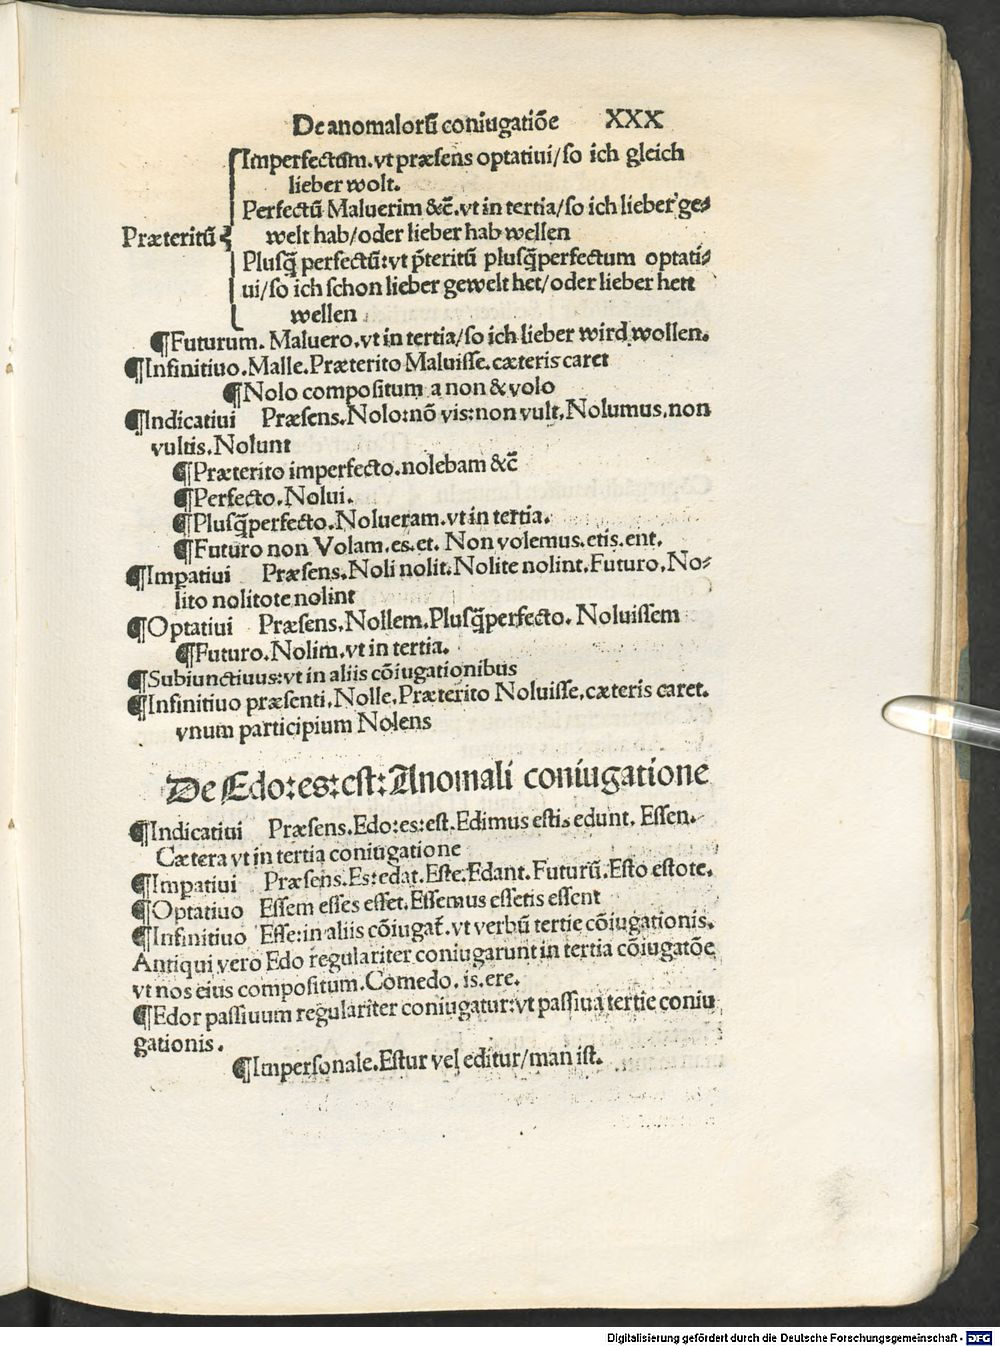 De anomalorū coniugatiōe XXX
Imperfectum.vt præsens optatiui/so ich gleich
lieber wolt.
Perfectū Maluerim &c̄.vt in tertia/so ich lieber ge⸗
Præteritū welt hab/oder lieber hab wellen
Plusq̄ perfectū:vt p̄teritū plusq̄perfectum optati⸗
ui/so ich schon lieber gewelt het/oder lieber hett
wellen
¶Futurum. Maluero.vt in tertia/so ich lieber wird wollen.
¶Infinitiuo.Malle.Præterito Maluisse.cæteris caret
¶Nolo compositum a non & volo
¶Indicatiui Præsens.Nolo:nō vis:non vult.Nolumus.non
vultis.Nolunt
¶Præterito imperfecto.nolebam &c̄
¶Perfecto.Nolui.
¶Plusq̄perfecto.Nolueram.vt in tertia.
¶Futuro non Volam.es.et. Non volemus.etis.ent.
¶Impatiui Præsens.Noli nolit.Nolite nolint.Futuro.No⸗
lito nolitote nolint
¶Optatiui Præsens.Nollem.Plusq̄perfecto. Noluissem
¶Futuro.Nolim.vt in tertia.
¶Subiunctiuus:vt in aliis cōiugationibus
¶Infinitiuo præsenti.Nolle.Præterito Noluisse.cæteris caret.
vnum participium Nolens
De Edo:es:est:Anomali coniugatione
¶Indicatiui Præsens.Edo:es:est.Edimus estis edunt. Essen.
Cætera vt in tertia coniugatione
¶Impatiui Præsens.Es:edat.Este:Edant.Futurū.Esto estote.
¶Optatiuo Essem esses esset.Essemus essetis essent
¶Infinitiuo Esse:in aliis cōiugat̄.vt verbū tertie cōiugationis.
Antiqui vero Edo regulariter coniugarunt in tertia cōiugatōe
vt nos eius compositum.Comedo.is.ere.
¶Edor passiuum regulariter coniugatur:vt passiua tertie coniu
gationis.
¶Impersonale.Estur vel editur/man ist.
Digitalisierung gefördert durch die Deutsche Forschungsgemeinschaft - DFG